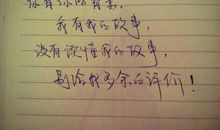 你有你的背景，
我有我的故事，
没有读懂我的故事，
别给我多余的评价！